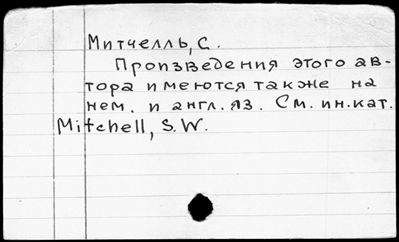 Митчелль, С.
Произведения этого ав-
тора имеются также на
нем. и англ. яз. См. ин. кат.
Mitchell, S. W.